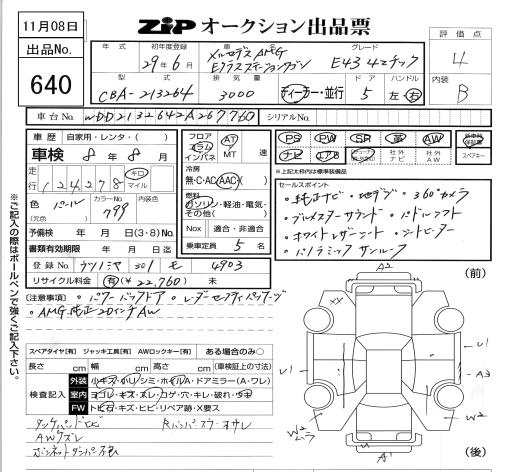 11月08日
ZIP オークション出品票
出品No.
640
年式 初年度登録 車名 グレード
29年6月 メルセデスAMG Eクラスステーションワゴン E43 4マチック
型式 排気量 ドア ハンドル
CBA-213264 3000 ディーラー・並行 5 左・右
評価点
4
内装
B
車台No. WDD2132642A267760 シリアルNo.
車歴 自家用・レンタ・( )
車検 8年8月
走行 124,278 キロ マイル
色 パール カラーNo. 799 内装色
(元色)
予備検 年 月 日(3・8)No.
書類有効期限 年 月 日迄
登録No. ウツノミヤ 301 モ 4903
リサイクル料金 有(¥22,760) 未
フロア コラム インパネ AT MT 速
冷房
無・C・AC・AAC・( )
燃料
ガソリン・軽油・電気・その他( )
Nox 適合・非適合
乗車定員 5名
PS PW SR 革 AW 新車時保証書
ナビ エアB 社外ナビ 社外AW スペアキー
※上記太枠内は標準装備品
セールスポイント
・純正ナビ ・地デジ ・360°カメラ
・ブルメスターサウンド ・パドルシフト
・ホワイトレザーシート ・シートヒーター
・パノラミックサンルーフ
(注意事項) ・パワーバックドア ・レーダーセーフティパッケージ
・AMG純正20インチAW
スペアタイヤ[有] ジャッキ工具[有] AWロックキー[有] ある場合のみ○
長さ cm 幅 cm 高さ cm (車検証上の寸法)
検査記入
外装 小キズ・かリ・シミ・ホイルA・ドアミラー(A・ワレ)
室内 ヨゴレ・キズ・スレ・コゲ・穴・キレ・破れ・
FW トビ石・キズ・ヒビ・リペア跡・X要ス
Rバンパー
AWキズ
ボンネットダンパー
※ご記入の際はボールペンで強くご記入下さい。
(前)
A2
U1
U1
A3
W2
W2
A1
(後)